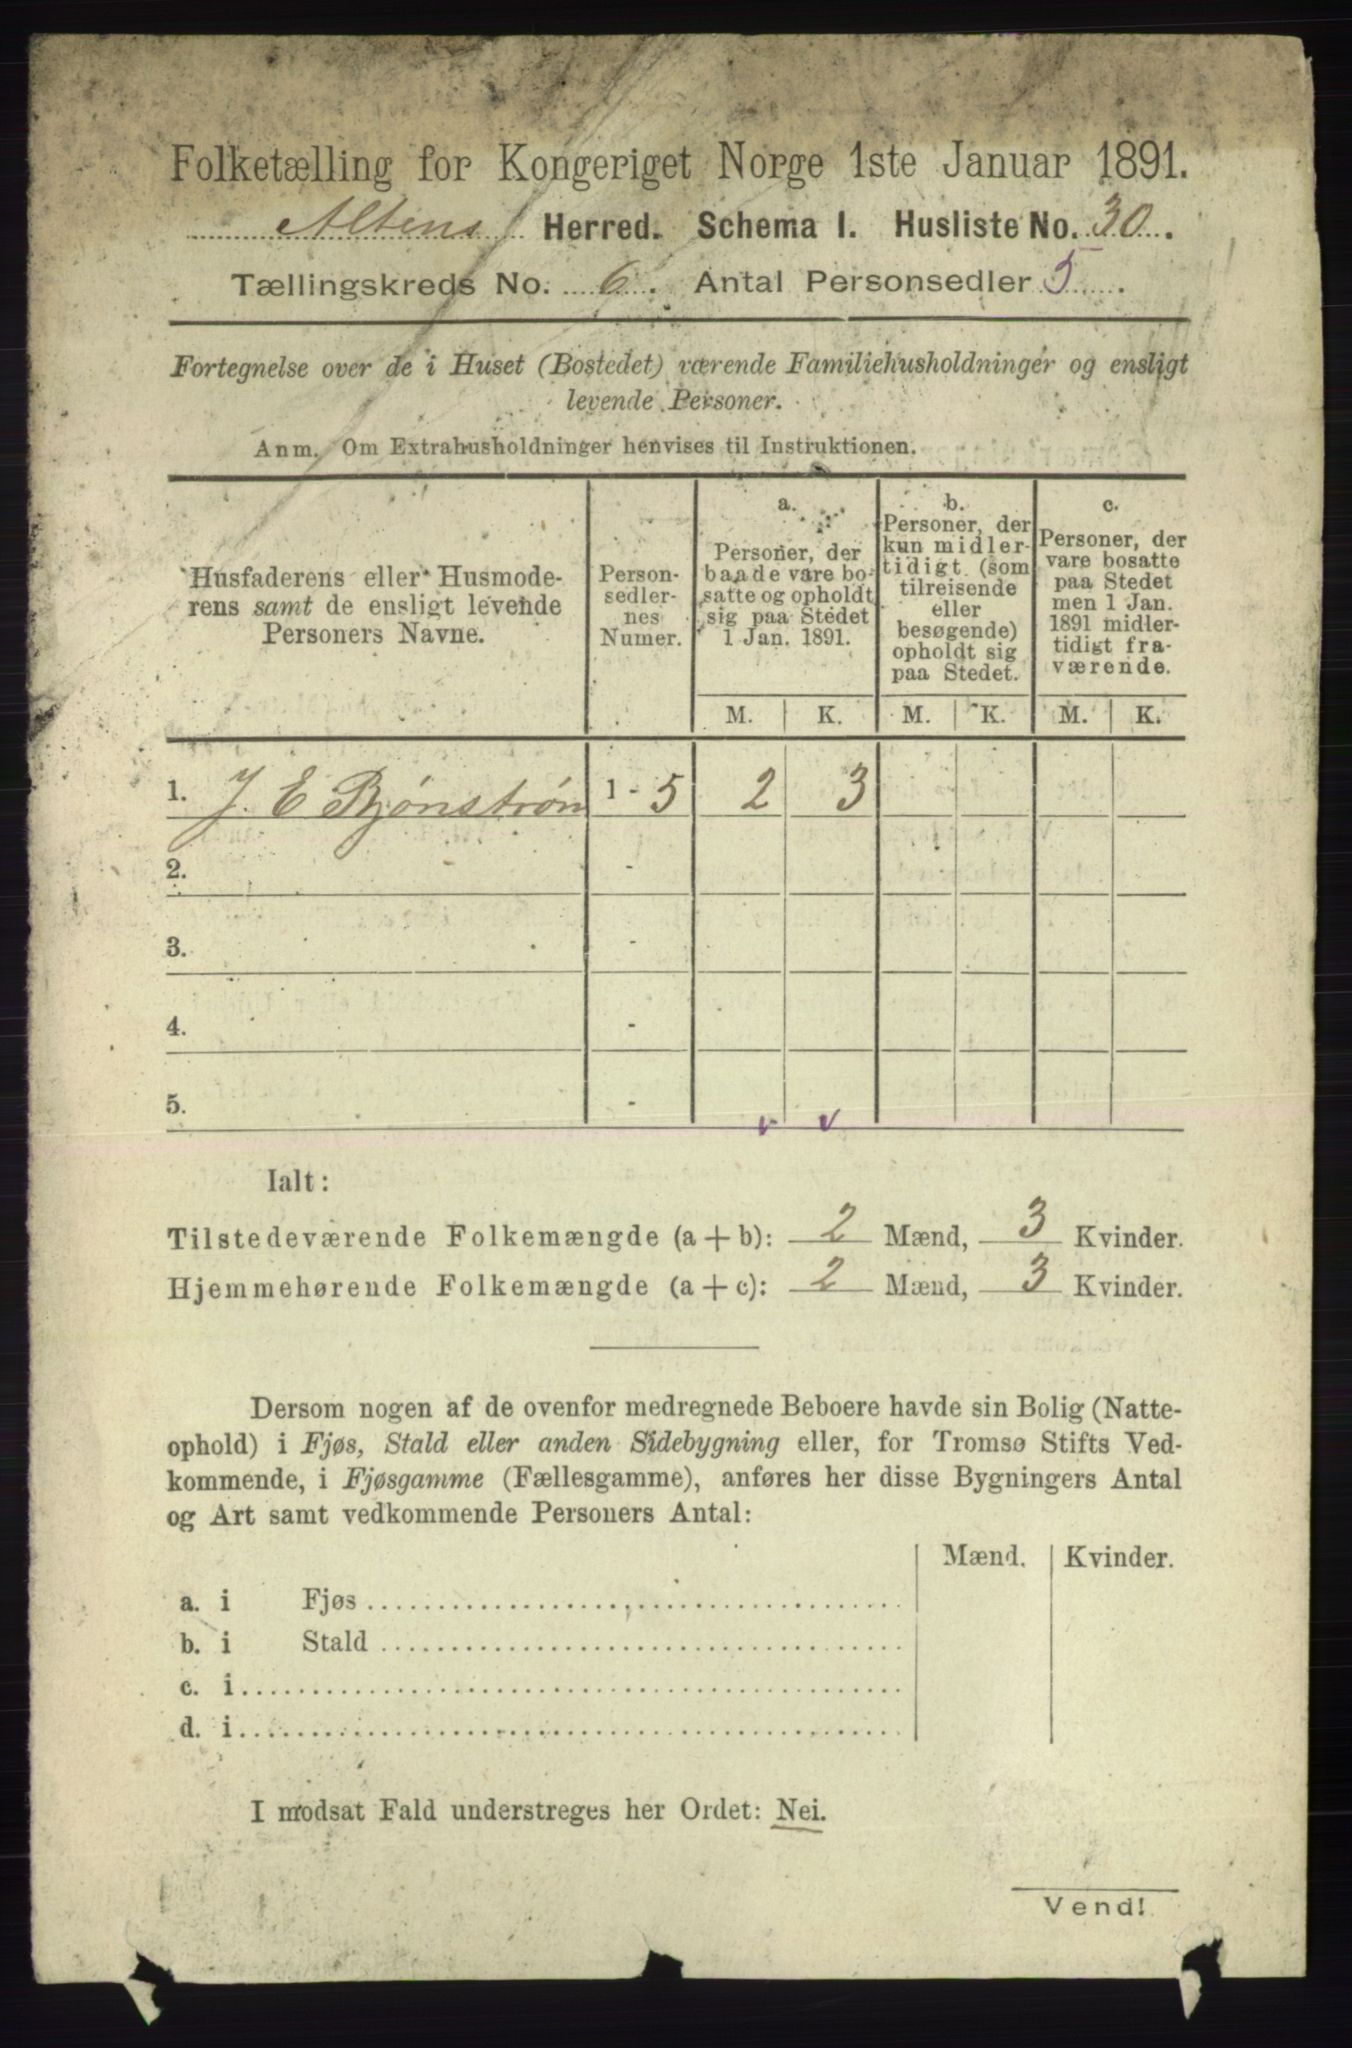 Folketælling for Kongeriget Norge 1ste Januar 1891.
Altens Herred. Schema I. Husliste No. 30.
Tællingskreds No. 6. Antal Personsedler 5.
Fortegnelse over de i Huset (Bostedet) værende Familiehusholdninger og ensligt
levende Personer.
Anm. Om Extrahusholdninger henvises til Instruktionen.
Husfaderens eller Husmode-
rens samt de ensligt levende
Personers Navne.
Person-
sedler-
nes
Numer.
a.
Personer, der
baade vare bo-
satte og opholdt
sig paa Stedet
1 Jan. 1891.
b.
Personer, der
kun midler-
tidigt (som
tilreisende
eller
besøgende)
opholdt sig
paa Stedet.
c.
Personer, der
vare bosatte
paa Stedet
men 1 Jan.
1891 midler-
tidigt fra-
værende.
M. K. M. K. M. K.
1. J. E Bjønstrøn 1 - 5 2 3
2. -
3. -
4. -
5. -
Ialt:
Tilstedeværende Folkemængde (a + b): 2 Mænd, 3 Kvinder.
Hjemmehørende Folkemængde (a + c): 2 Mænd, 3 Kvinder.
Dersom nogen af de ovenfor medregnede Beboere havde sin Bolig (Natte-
ophold) i Fjøs, Stald eller anden Sidebygning eller, for Tromsø Stifts Ved-
kommende, i Fjøsgamme (Fællesgamme), anføres her disse Bygningers Antal
og Art samt vedkommende Personers Antal:
Mænd. Kvinder.
a. i Fjøs
b. i Stald
c. i
d. i
I modsat Fald understreges her Ordet: Nei.
Vend!